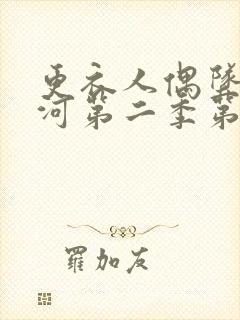 更衣人偶墜
河第二季第
羅加友